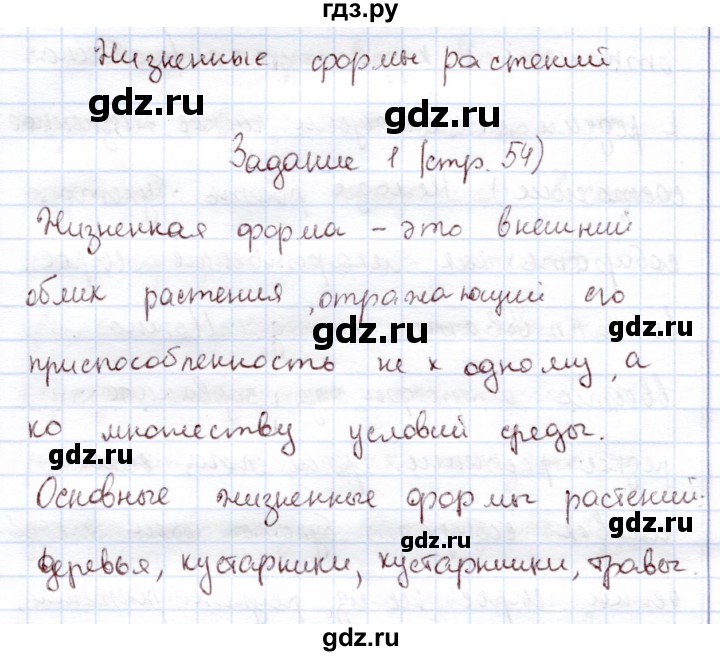 гдз.ру
Жизненные формы растений
gdz.ru gdz.ru
Задание 1 (стр. 54)
Жизненная форма – это внешний
облик растения, отражающий его
gdz.ru
приспособленность не к одному, а
ко множеству условий среды.
gdz.ru gdz.ru
Основные жизненные формы растений:
gdz.ru
деревья, кустарники, кустарнички, травы.
gdz.ru